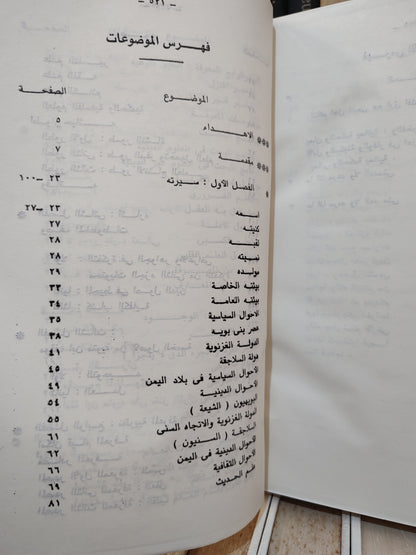 — ٥٢١ —
فهرس الموضوعات
الموضوع الصفحة
*** الاهداء ٥
*** مقدمة ٧
* الفصل الأول : سيرته ٢٣ – ١٠٠
اسمه ٢٣ – ٢٧
كنيته ٢٧
لقبه ٢٨
نسبته ٢٨
مولده ٢٩
بيئته الخاصة ٣٣
بيئته العامة ٣٤
الاحوال السياسية ٣٥
عصر بنى بويه ٣٨
الدولة الغزنوية ٤١
دولة السلاجقة ٤٥
الأحوال السياسية فى بلاد اليمن ٤٩
الأحوال الدينية ٥٤
البويهيون ( الشيعة ) ٥٥
الدولة الغزنوية والاتجاه السلفى ٦١
السلاجقة ( السنيون ) ٦٢
الأحوال الدينية فى اليمن ٦٦
الأحوال الثقافية ٦٩
علم الحديث ٨١